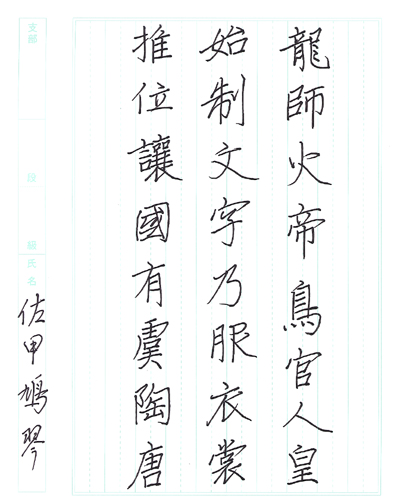 龍師火帝鳥官人皇
始制文字乃服衣裳
推位讓國有虞陶唐
支部
段
級
氏名
佐甲鳩琴